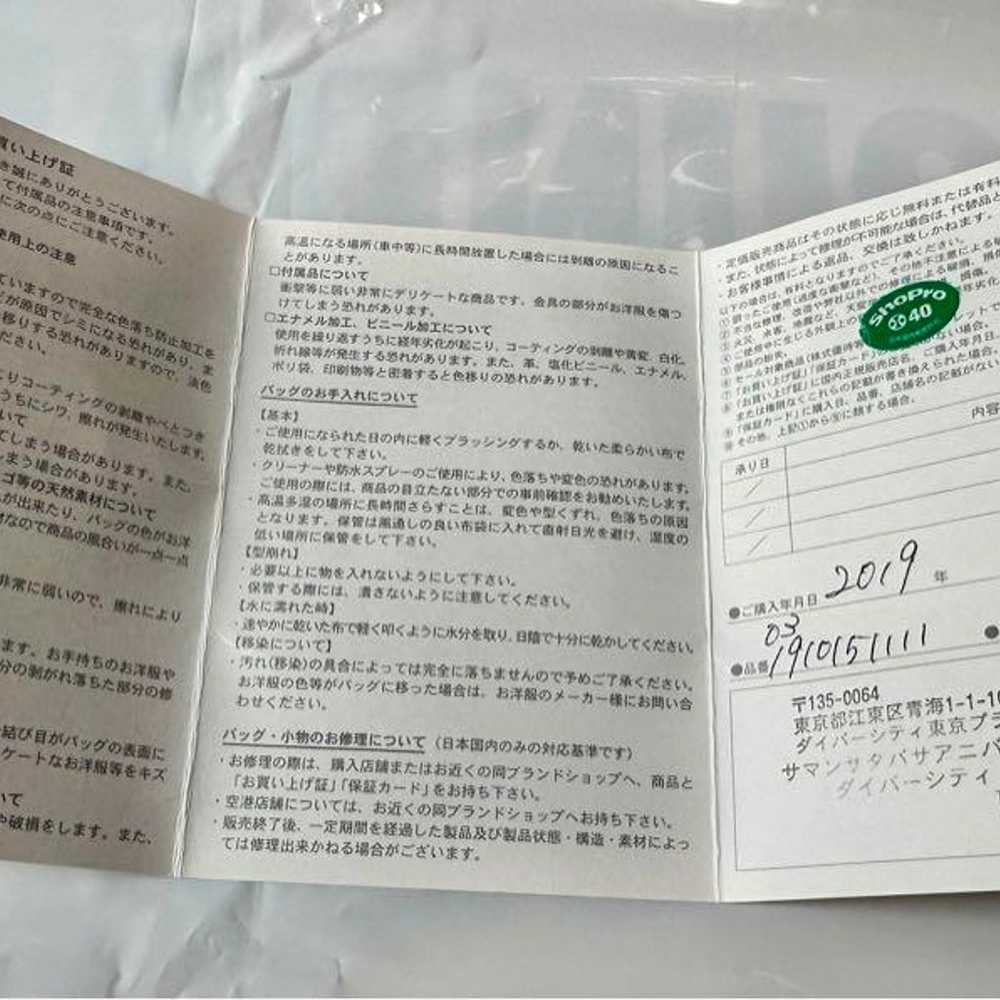 買い上げ証
き誠にありがとうございます。
て付属品の注意事項です。
に次の点にご注意ください。
使用上の注意
ていますので完全な色落ち防止加工を
どが原因でシミになる恐れがあり、ま
移りする恐れがありますので、淡色
ださい。
こりコーティングの剥離やべとつき
うちにシワ、擦れが発生いたします。
いて
てしまう場合があります。また、
しまう場合があります。
ゴ等の天然素材について
れが出来たり、バッグの色がお洋
材なので商品の風合いが一点一点
非常に弱いので、擦れにより
ます。お手持ちのお洋服や
分の剥がれ落ちた部分の修
結び目がバッグの表面に
ケートなお洋服等をキズ
いて
や破損をします。また、
高温になる場所(車中等)に長時間放置した場合には剥離の原因になるこ
とがあります。
□付属品について
衝撃等に弱い非常にデリケートな商品です。金具の部分がお洋服を傷つ
けてしまう恐れがあります。
□エナメル加工、ビニール加工について
使用を繰り返すうちに経年劣化が起こり、コーティングの剥離や黄変、白化、
折れ線等が発生する恐れがあります。また、革、塩化ビニール、エナメル、
ポリ袋、印刷物等と密着すると色移りの恐れがあります。
バッグのお手入れについて
【基本】
・ご使用になられた日の内に軽くブラッシングするか、乾いた柔らかい布で
乾拭きをして下さい。
・クリーナーや防水スプレーのご使用により、色落ちや変色の恐れがあります。
ご使用の際には、商品の目立たない部分での事前確認をお勧めいたします。
・高温多湿の場所に長時間さらすことは、変色や型くずれ、色落ちの原因
となります。保管は風通しの良い布袋に入れて直射日光を避け、湿度の
低い場所に保管をして下さい。
【型崩れ】
・必要以上に物を入れないようにして下さい。
・保管する際には、潰さないように注意してください。
【水に濡れた時】
・速やかに乾いた布で軽く叩くように水分を取り、日陰で十分に乾かしてください。
【移染について】
・汚れ(移染)の具合によっては完全に落ちませんので予めご了承ください。
お洋服の色等がバッグに移った場合は、お洋服のメーカー様にお問い合
わせください。
バッグ・小物のお修理について(日本国内のみの対応基準です)
・お修理の際は、購入店舗またはお近くの同ブランドショップへ、商品と
「お買い上げ証」「保証カード」をお持ち下さい。
・空港店舗については、お近くの同ブランドショップへお持ち下さい。
・販売終了後、一定期間を経過した製品及び製品状態・構造・素材によっ
ては修理出来かねる場合がございます。
・定価販売商品はその状態に応じ無料または有料
また、状態によって修理が不可能な場合は、代替品と
・お客様事情による返品、交換は致しかねます。
以下の場合は、有料となりますのでご了承ください。
ShoPro
40
承り日
内容
●ご購入年月日 2019 年
●品番 03 1910151111
〒135-0064
東京都江東区青海1-1-10
ダイバーシティ東京プラ
サマンサタバサアニバ
ダイバーシティ